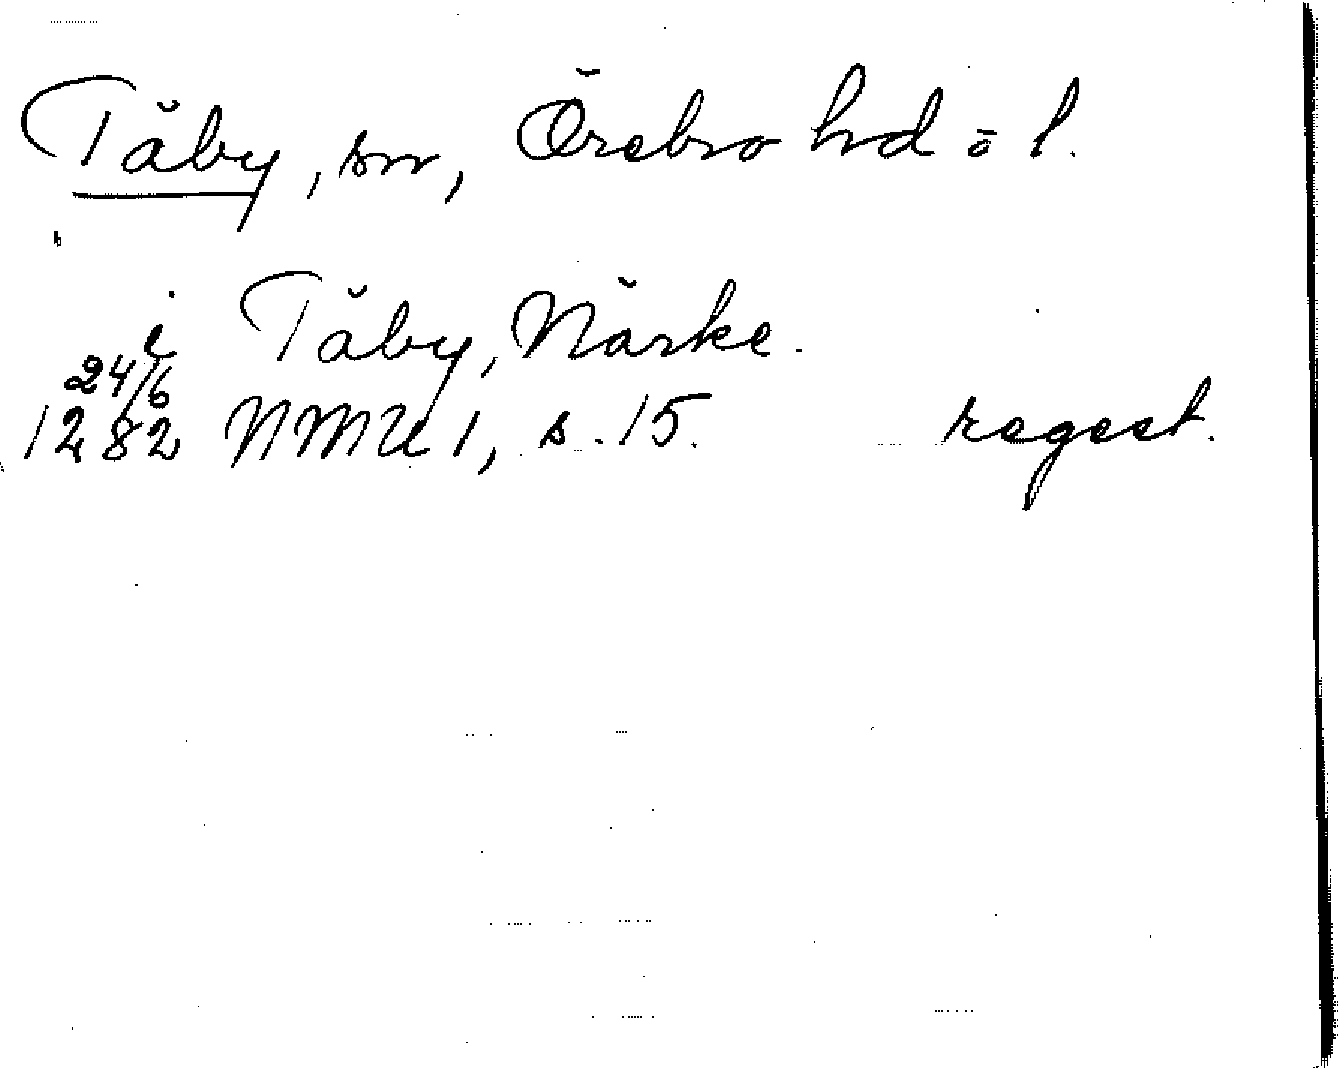 Täby, sn, Örebro hd ö l.
i Täby, Närke.
24/6
1282 NMU 1, s. 15. regest.